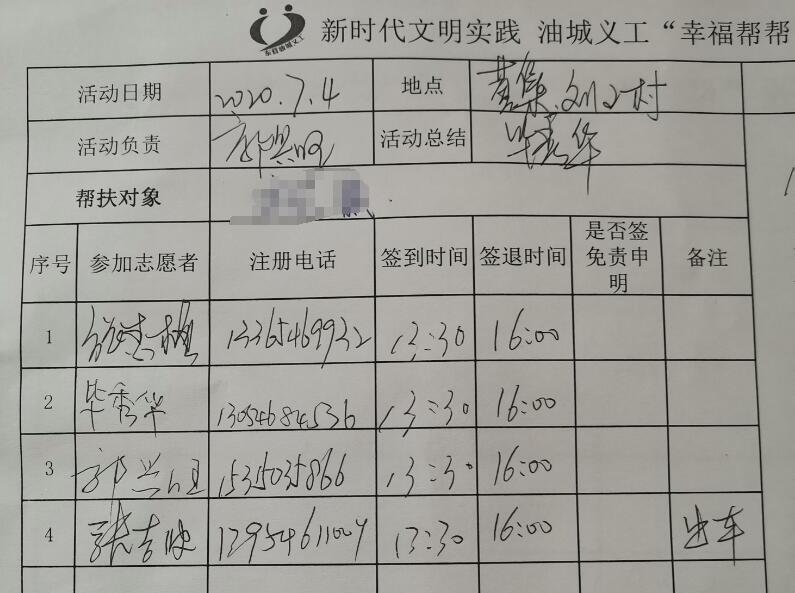 新时代文明实践 油城义工“幸福帮帮
东营油城义工
活动日期 2020.7.4 地点 黄集刘口村
活动负责 活动总结 毕秀华
帮扶对象
序号 参加志愿者 注册电话 签到时间 签退时间 是否签免责申明 备注
1 13365469932 13:30 16:00
2 毕秀华 13054684536 13:30 16:00
3 1535035866 13:30 16:00
4 13:30 16:00 出车